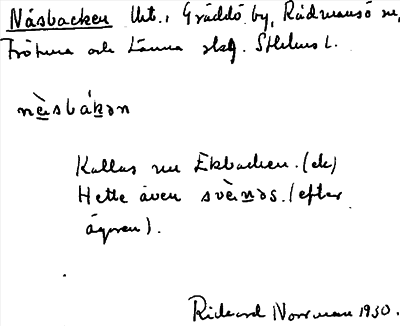 Näsbacken Utr., Gräddö by, Rådmansö sn,
Frötuna och Länna skg. Sthlms l.
nèsbákən
Kallas nu Ekbacken. (ek)
Hette även svèinəs. (efter
ägaren).
Rickard Norrman 1930.